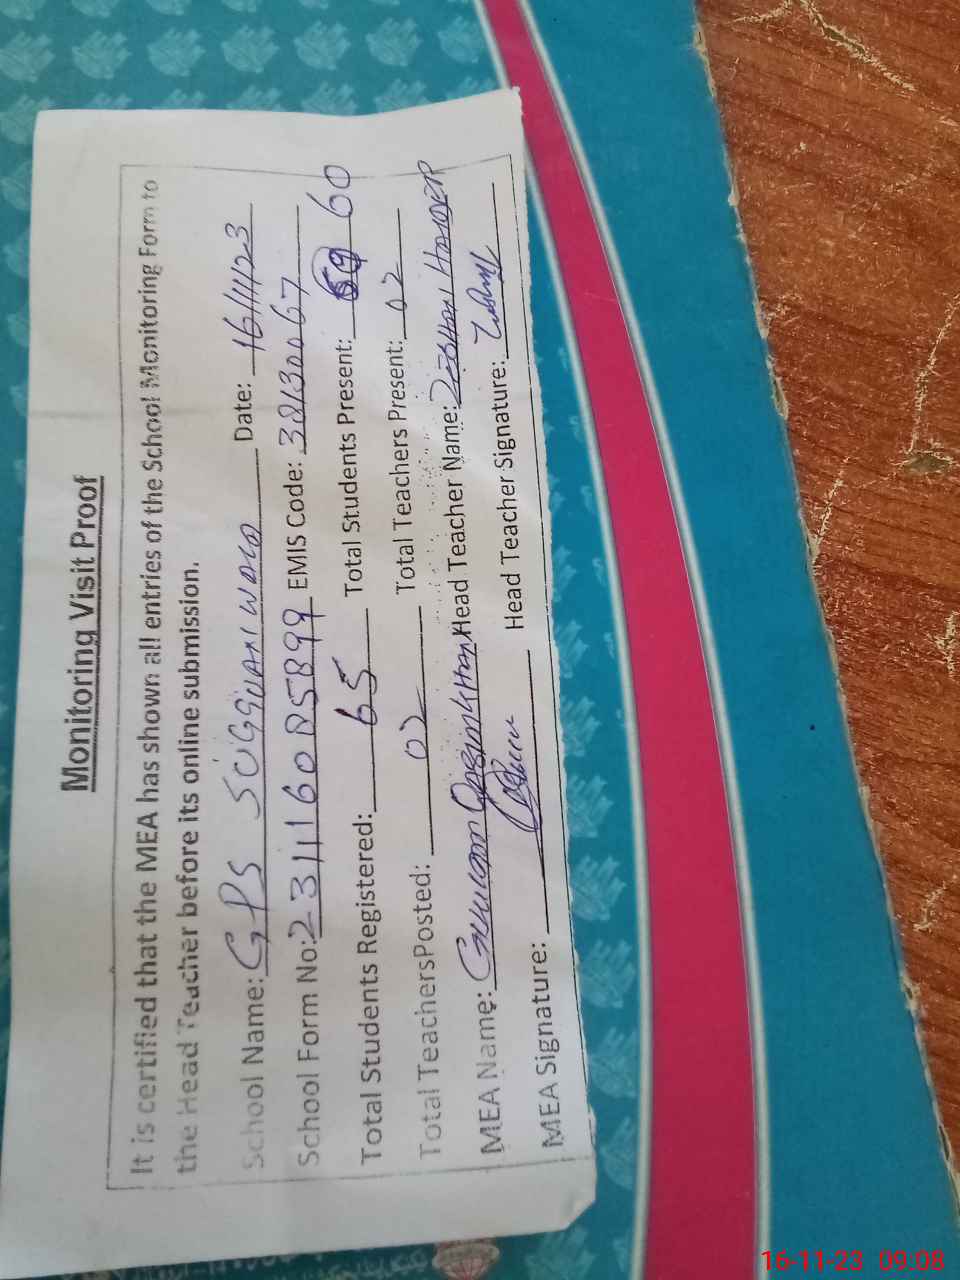 Monitoring Visit Proof
It is certified that the MEA has shown all entries of the School Monitoring Form to
the Head Teacher before its online submission.
School Name: GPS SUGGUANI WALA Date: 16/11/23
School Form No: 23111608S899 EMIS Code: 38130067
Total Students Registered: 65 Total Students Present: 59 60
Total TeachersPosted: 02 Total Teachers Present: 02
MEA Name: Ghulam Qasim Khan Head Teacher Name: Zeeshan Haider
MEA Signature: Head Teacher Signature:
16-11-23 09:08